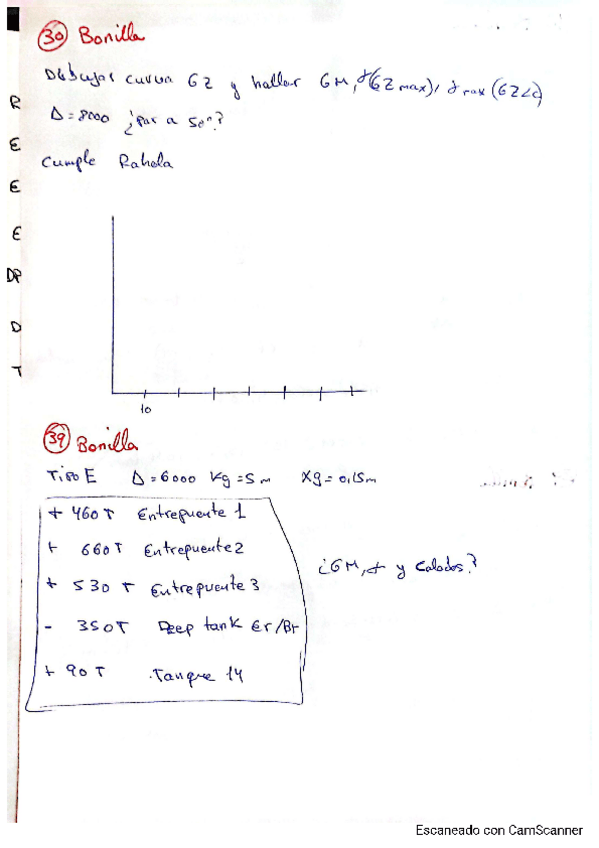 30 Bonilla
Dibujar curva GZ y hallar GM, (GZ max), max (GZ
Δ=8000 ¿par a 50º?
Cumple Rahola
R
E
E
E
DP
D
T
10
39 Bonilla
Tipo E Δ=6000 Kg=5m Xg=0,15m
+ 460 T Entrepuente 1
+ 660T Entrepuente 2
+ 530 T Entrepuente 3
- 350T Deep tank Er/Br
+ 90 T Tanque 14
¿GM, y Calados?
Escaneado con CamScanner